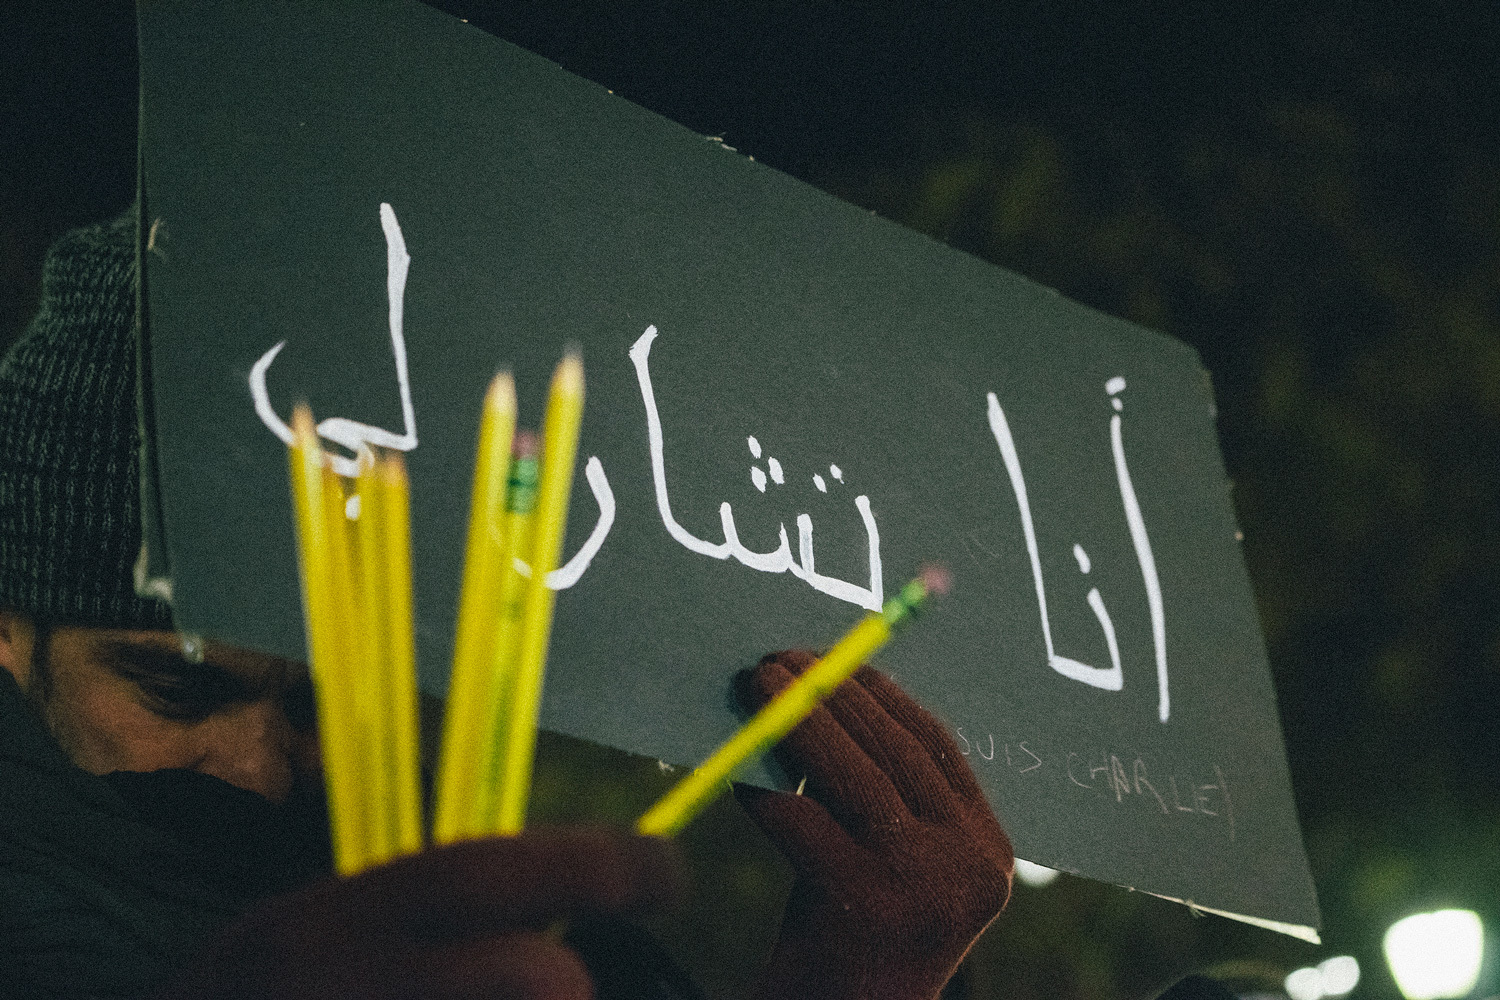 أنا تشارلي
SUIS CHARLIE